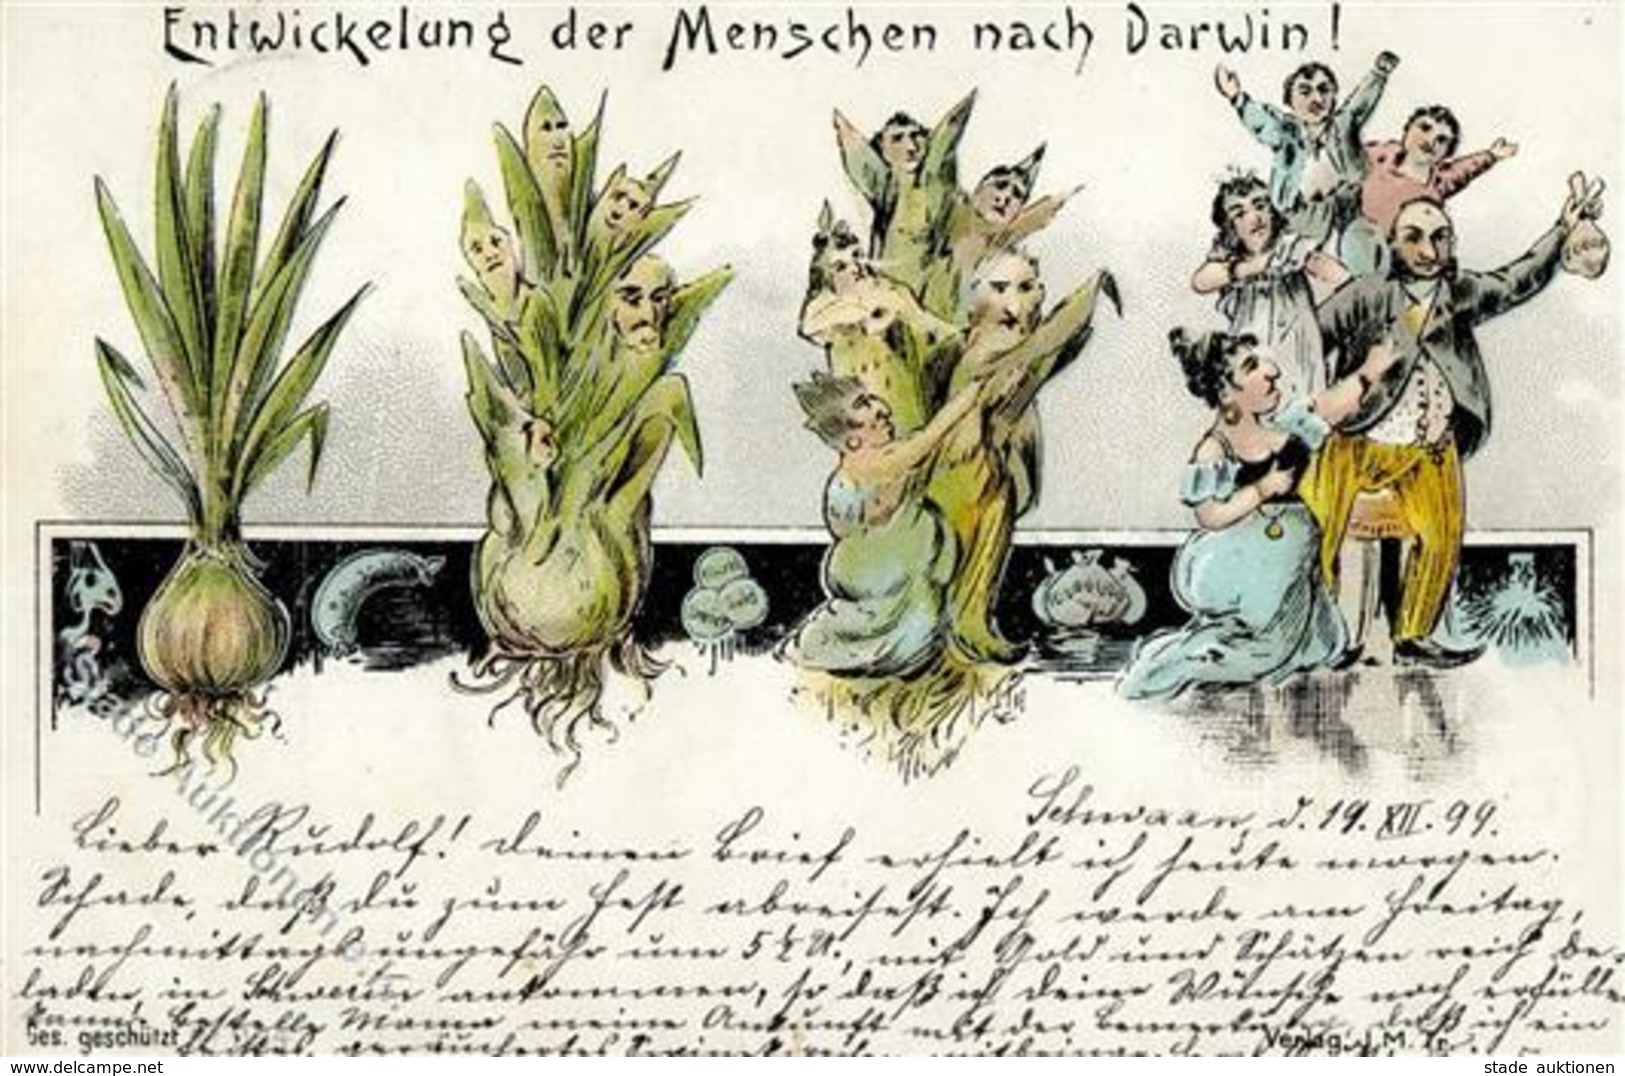 Entwickelung der Menschen nach Darwin!
Schwaan, d. 19. XII. 99.
Lieber Rudolf! Deinen Brief erhielt ich heute morgen.
Schade, daß du zum Fest abreisest. Ich werde am Freitag,
nachmittags ungefähr um 5 ½ U., mit Gold und Schätzen reich be-
laden, in Schwerin ankommen, so daß ich deine Wünsche noch erfüllen
kann. Bestelle Mama meine Ankunft mit der Bemerkung, daß ich ein
Ges. geschützt
geräuchertes
Verlag J. M.
www.ansichtskartenversand.com
stade auktionen